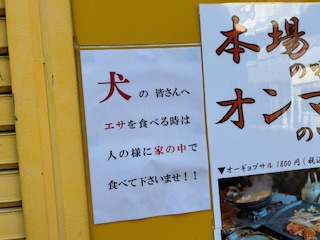 犬の 皆さんへ
エサを食べる時は
人の様に家の中で
食べて下さいませ！！
本場
の
オンマ
の
▼オーギョプサル 1800円(税込